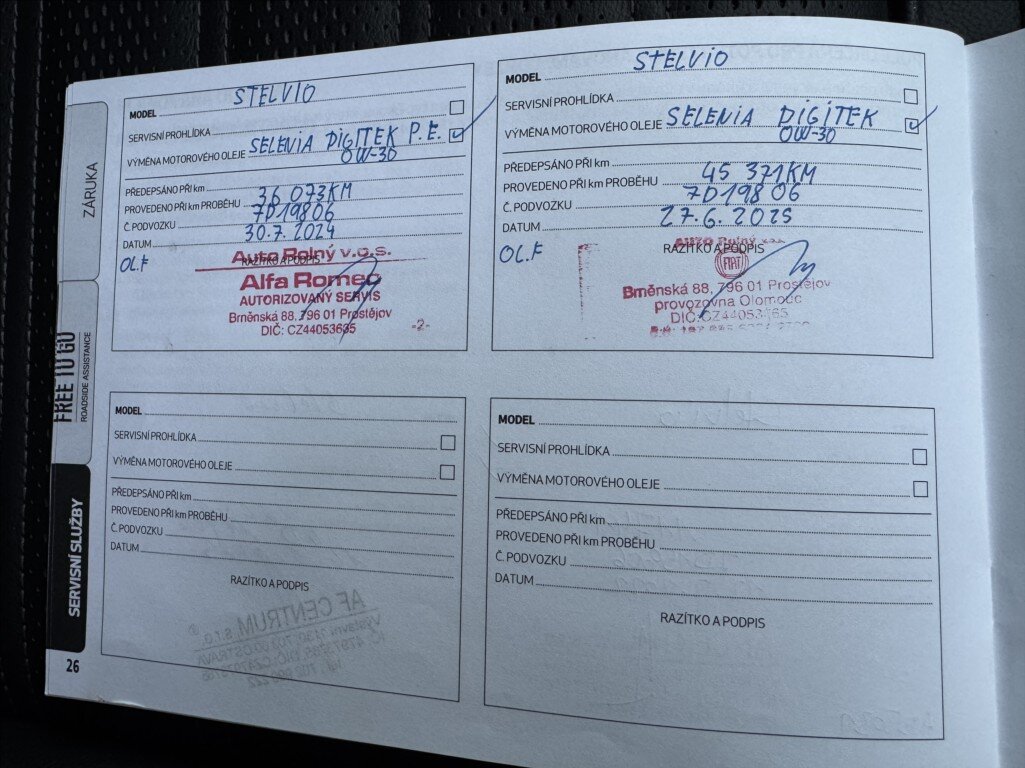 ZÁRUKA
FREE TO GO
ROADSIDE ASSISTANCE
SERVISNÍ SLUŽBY
26
STELVIO
MODEL
SERVISNÍ PROHLÍDKA
VÝMĚNA MOTOROVÉHO OLEJE SELENIA DIGITEK P.E.
0W-30
PŘEDEPSÁNO PŘI km
PROVEDENO PŘI km PROBĚHU 36 073KM
Č. PODVOZKU 7D19806
DATUM 30.7.2024
OL.F
RAZÍTKO A PODPIS
Auto Rolný v.o.s.
Alfa Romeo
AUTORIZOVANÝ SERVIS
Brněnská 88, 796 01 Prostějov
DIČ: CZ44053635 -2-
STELVIO
MODEL
SERVISNÍ PROHLÍDKA
VÝMĚNA MOTOROVÉHO OLEJE SELENIA DIGITEK
0W-30
PŘEDEPSÁNO PŘI km
PROVEDENO PŘI km PROBĚHU 45 371KM
Č. PODVOZKU 7D19806
DATUM 27.6.2025
OL.F
RAZÍTKO A PODPIS
Auto Rolný
FIAT
Brněnská 88, 796 01 Prostějov
provozovna Olomouc
MODEL
SERVISNÍ PROHLÍDKA
VÝMĚNA MOTOROVÉHO OLEJE
PŘEDEPSÁNO PŘI km
PROVEDENO PŘI km PROBĚHU
Č. PODVOZKU
DATUM
RAZÍTKO A PODPIS
MODEL
SERVISNÍ PROHLÍDKA
VÝMĚNA MOTOROVÉHO OLEJE
PŘEDEPSÁNO PŘI km
PROVEDENO PŘI km PROBĚHU
Č. PODVOZKU
DATUM
RAZÍTKO A PODPIS